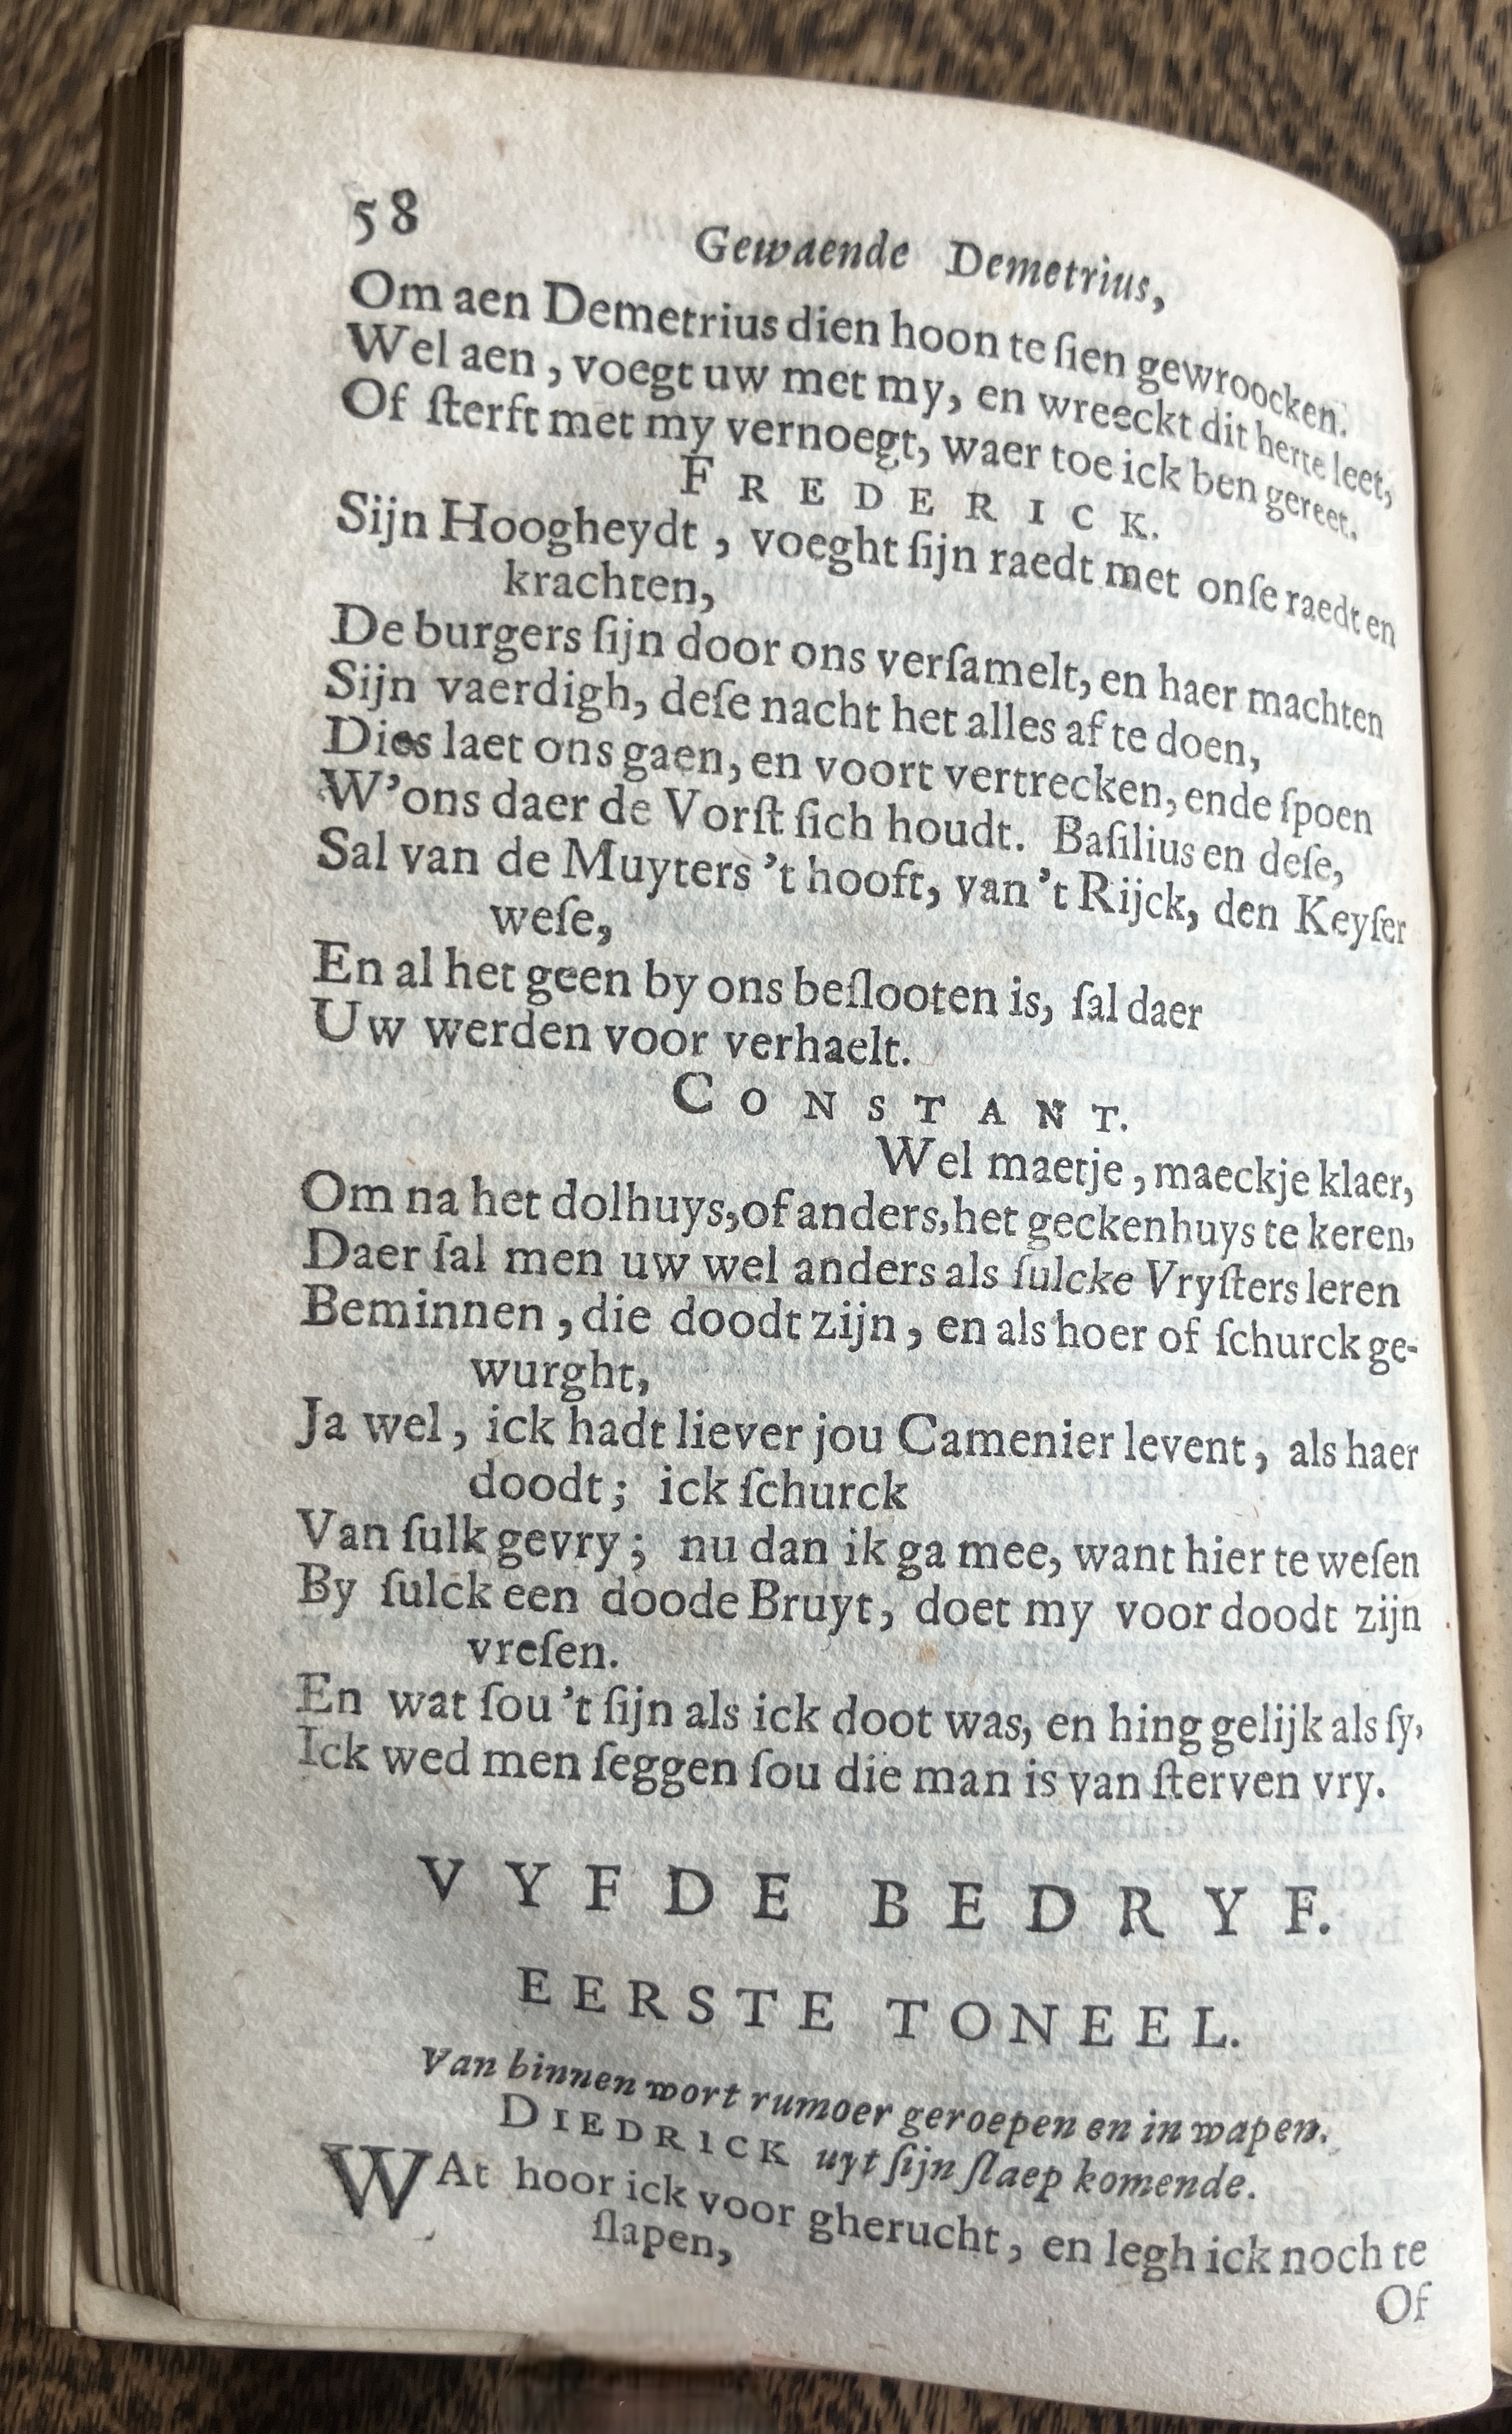 58
Gewaende Demetrius,
Om aen Demetrius dien hoon te ſien gewroocken.
Wel aen, voegt uw met my, en wreeckt dit herte leet,
Of ſterft met my vernoegt, waer toe ick ben gereet.
FREDERICK.
Sijn Hoogheydt, voeght ſijn raedt met onſe raedt en
krachten,
De burgers ſijn door ons verſamelt, en haer machten
Sijn vaerdigh, deſe nacht het alles af te doen,
Dies laet ons gaen, en voort vertrecken, ende ſpoen
W'ons daer de Vorſt ſich houdt. Baſilius en deſe,
Sal van de Muyters 't hooft, van 't Rijck, den Keyſer
weſe,
En al het geen by ons beſlooten is, ſal daer
Uw werden voor verhaelt.
CONSTANT.
Wel maetje, maeckje klaer,
Om na het dolhuys, of anders, het geckenhuys te keren,
Daer ſal men uw wel anders als ſulcke Vryſters leren
Beminnen, die doodt zijn, en als hoer of ſchurck ge-
wurght,
Ja wel, ick hadt liever jou Camenier levent, als haer
doodt; ick ſchurck
Van ſulk gevry; nu dan ik ga mee, want hier te weſen
By ſulck een doode Bruyt, doet my voor doodt zijn
vreſen.
En wat ſou 't ſijn als ick doot was, en hing gelijk als ſy,
Ick wed men ſeggen ſou die man is van ſterven vry.
VYFDE BEDRYF.
EERSTE TONEEL.
Van binnen wort rumoer geroepen en in wapen.
DIEDRICK uyt ſijn ſlaep komende.
WAt hoor ick voor gherucht, en legh ick noch te
ſlapen,
Of